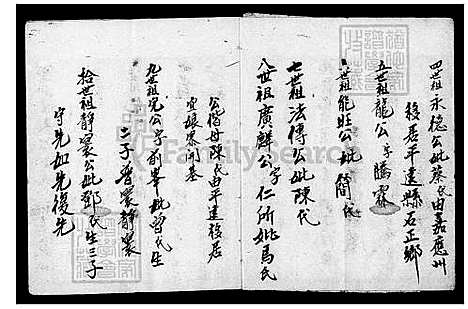 四世祖永穩公妣蔡氏由嘉應州
移居平遠縣石正鄉
五世祖龍公字騰霖
六世祖能旺公妣簡氏
七世祖法傳公妣陳氏
八世祖廣鱗公字仁所妣馬氏
公偕母陳氏由平遠移居
宜娘眾開基
九世祖公字前峯妣曾氏生
二子 寰靜寰
拾世祖靜寰公妣鄧氏生三子
守先如先復先
FamilySearch